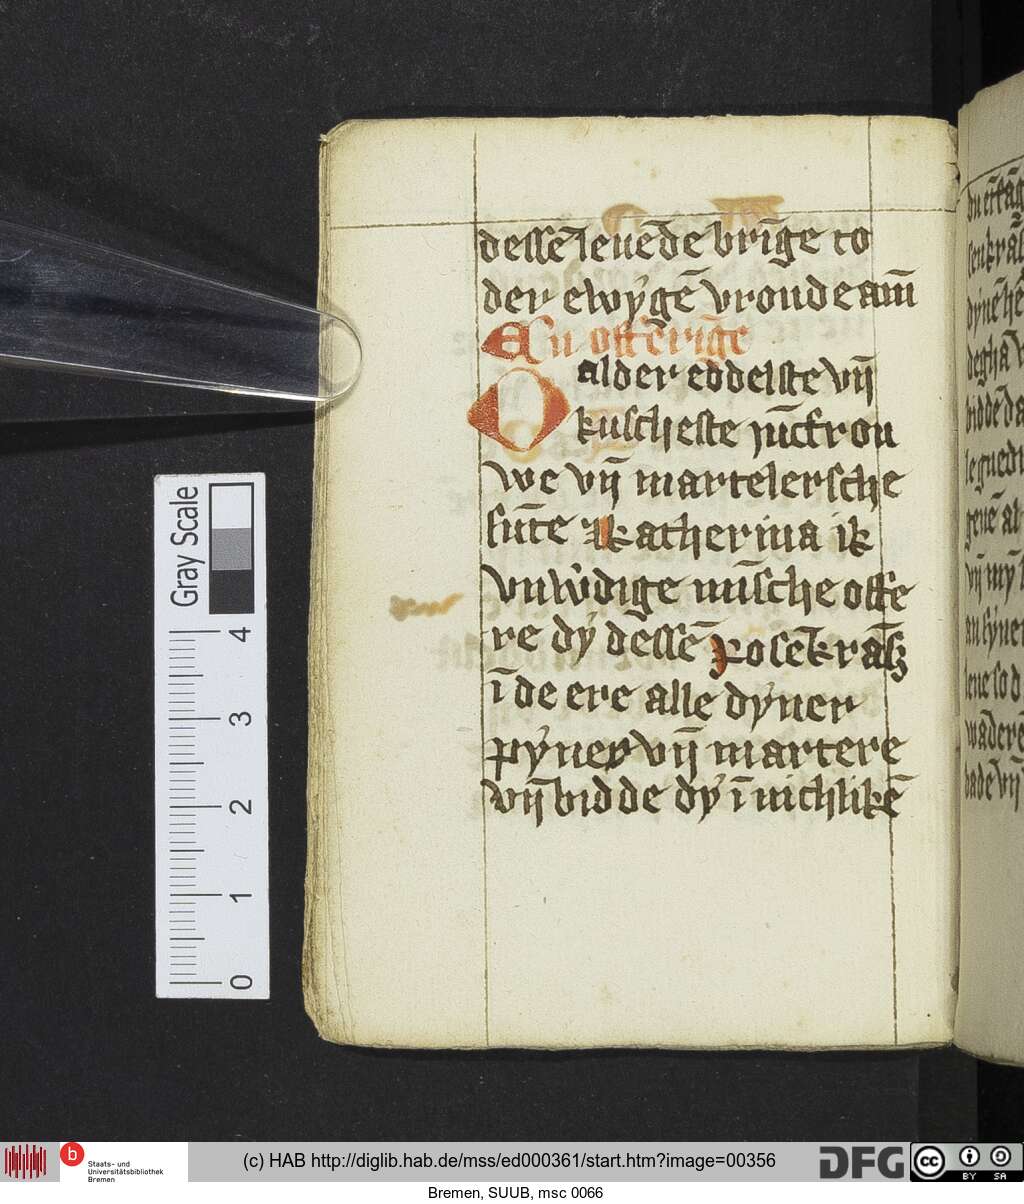 dessē leuēde brīge to
der ewygē vroude am̄
En offerīge
O alder eddelste vn̄
kuscheste jūcfrou
we vn̄ martelersche
sūte katherina ik
vnwdige mīsche offe
re dy dessē rosēkrās
ī de ere alle dyner
pyney vn̄ martere
vn̄ bidde dy īnichlikē
Gray Scale
4
3
2
1
0
b Staats- und
Universitätsbibliothek
Bremen
(c) HAB http://diglib.hab.de/mss/ed000361/start.htm?image=00356
DFG
cc BY SA
Bremen, SUUB, msc 0066